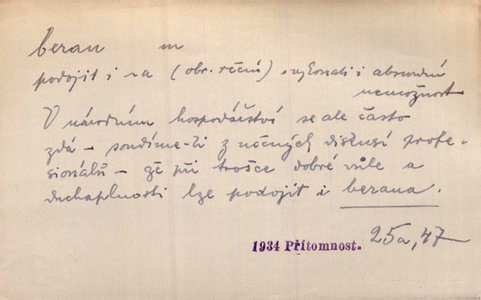 beran m
podojit i -a (obr. rčení) „vykonati i absurdní
nemožnost
V národním hospodářství se ale často
zdá – soudíme-li z učených diskusí profe-
sionálů – že při trošce dobré vůle a
duchaplnosti lze podojit i berana.
1934 Přítomnost. 25a, 47